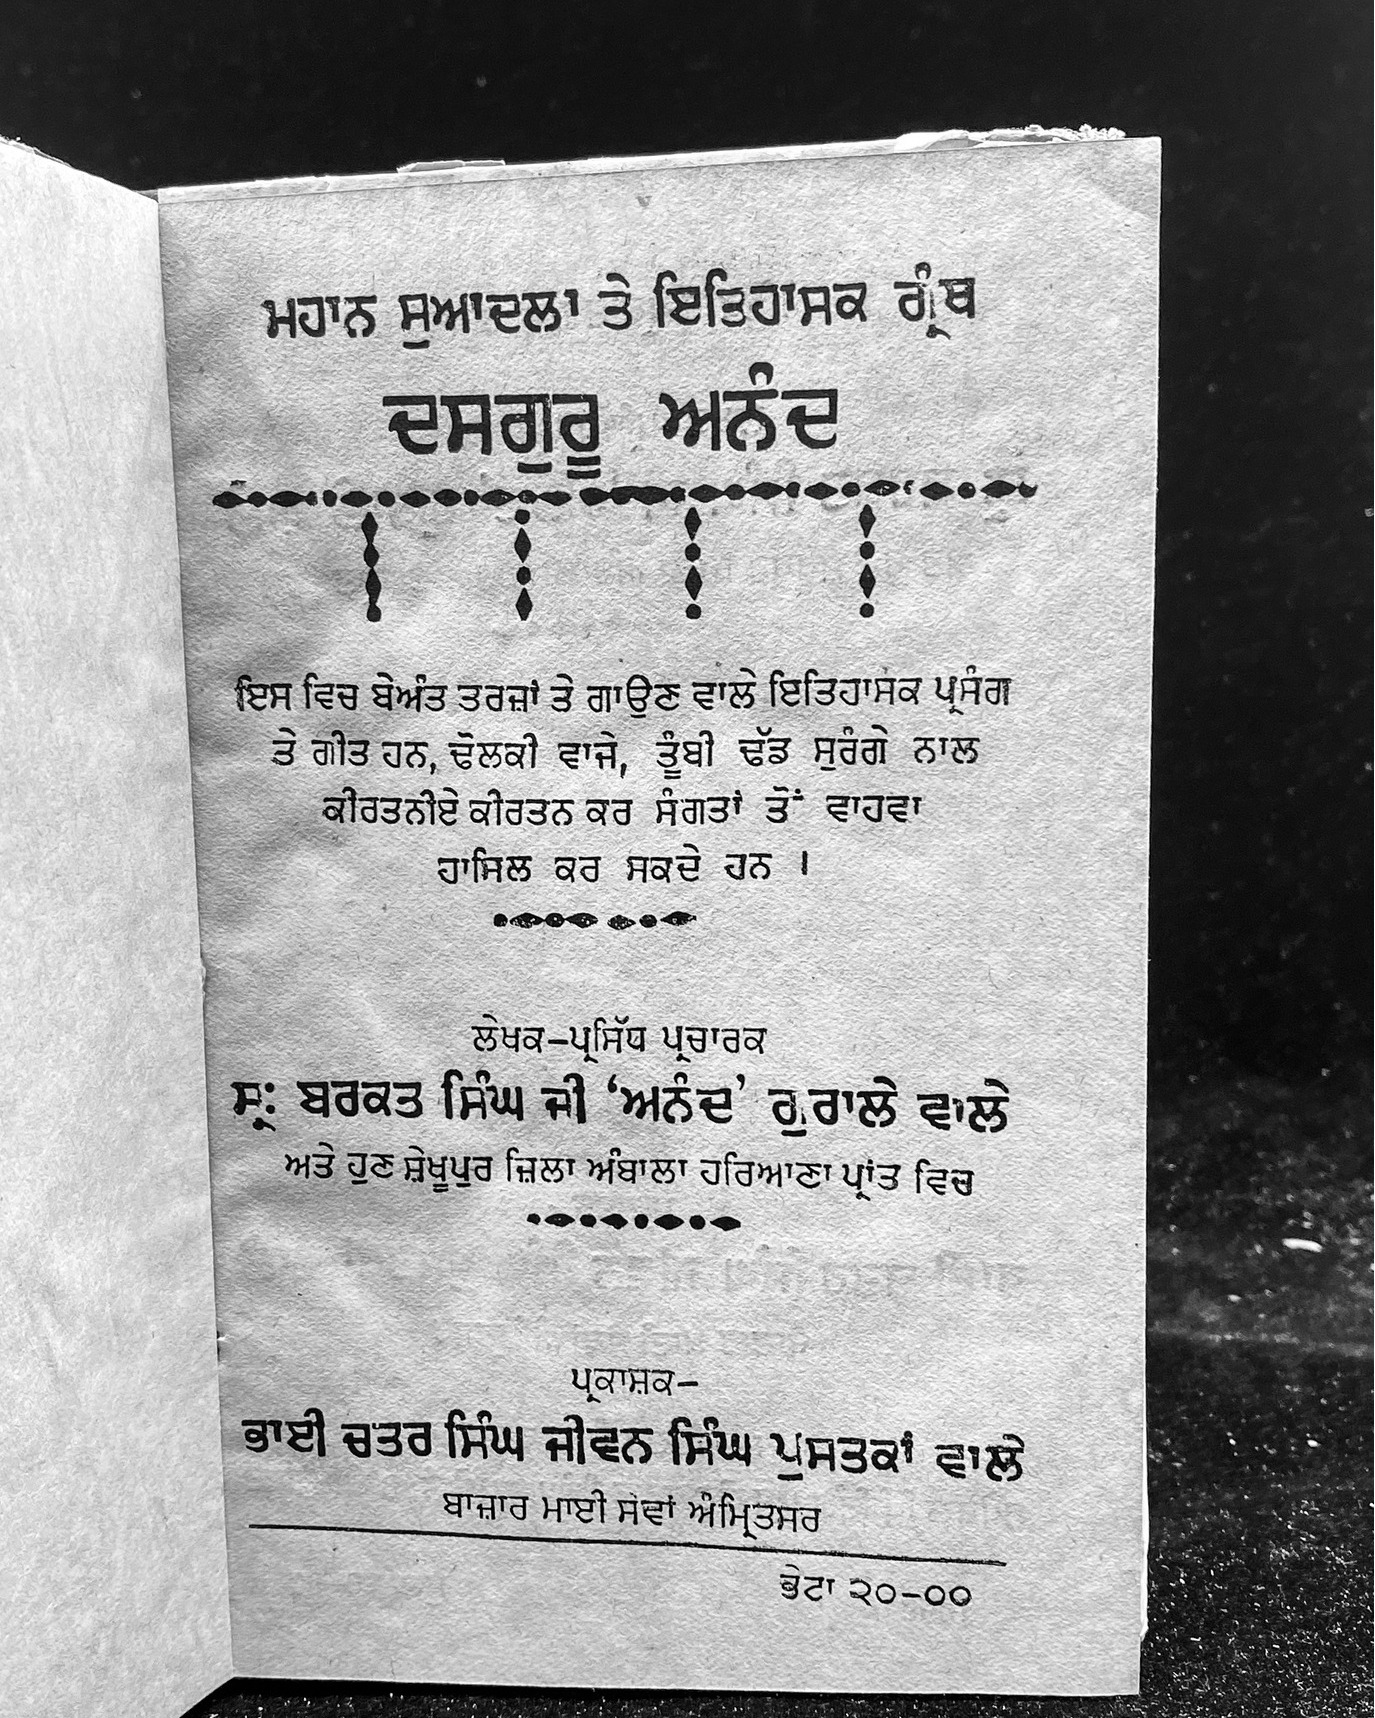 ਮਹਾਨ ਸੁਆਦਲਾ ਤੇ ਇਤਿਹਾਸਕ ਗ੍ਰੰਥ
ਦਸਗੁਰੂ ਅਨੰਦ
ਇਸ ਵਿਚ ਬੇਅੰਤ ਤਰਜ਼ਾਂ ਤੇ ਗਾਉਣ ਵਾਲੇ ਇਤਿਹਾਸਕ ਪ੍ਰਸੰਗ
ਤੇ ਗੀਤ ਹਨ, ਢੋਲਕੀ ਵਾਜੇ, ਤੂੰਬੀ ਢੱਡ ਸੁਰੰਗੇ ਨਾਲ
ਕੀਰਤਨੀਏ ਕੀਰਤਨ ਕਰ ਸੰਗਤਾਂ ਤੋਂ ਵਾਹਵਾ
ਹਾਸਿਲ ਕਰ ਸਕਦੇ ਹਨ ।
ਲੇਖਕ–ਪ੍ਰਸਿੱਧ ਪ੍ਰਚਾਰਕ
ਸ੍ਰ: ਬਰਕਤ ਸਿੰਘ ਜੀ ‘ਅਨੰਦ’ ਗੁਰਾਲੇ ਵਾਲੇ
ਅਤੇ ਹੁਣ ਸ਼ੇਖੂਪੁਰ ਜ਼ਿਲਾ ਅੰਬਾਲਾ ਹਰਿਆਣਾ ਪ੍ਰਾਂਤ ਵਿਚ
ਪ੍ਰਕਾਸ਼ਕ–
ਭਾਈ ਚਤਰ ਸਿੰਘ ਜੀਵਨ ਸਿੰਘ ਪੁਸਤਕਾਂ ਵਾਲੇ
ਬਾਜ਼ਾਰ ਮਾਈ ਸੇਵਾਂ ਅੰਮ੍ਰਿਤਸਰ
ਭੇਟਾ ੨੦–੦੦